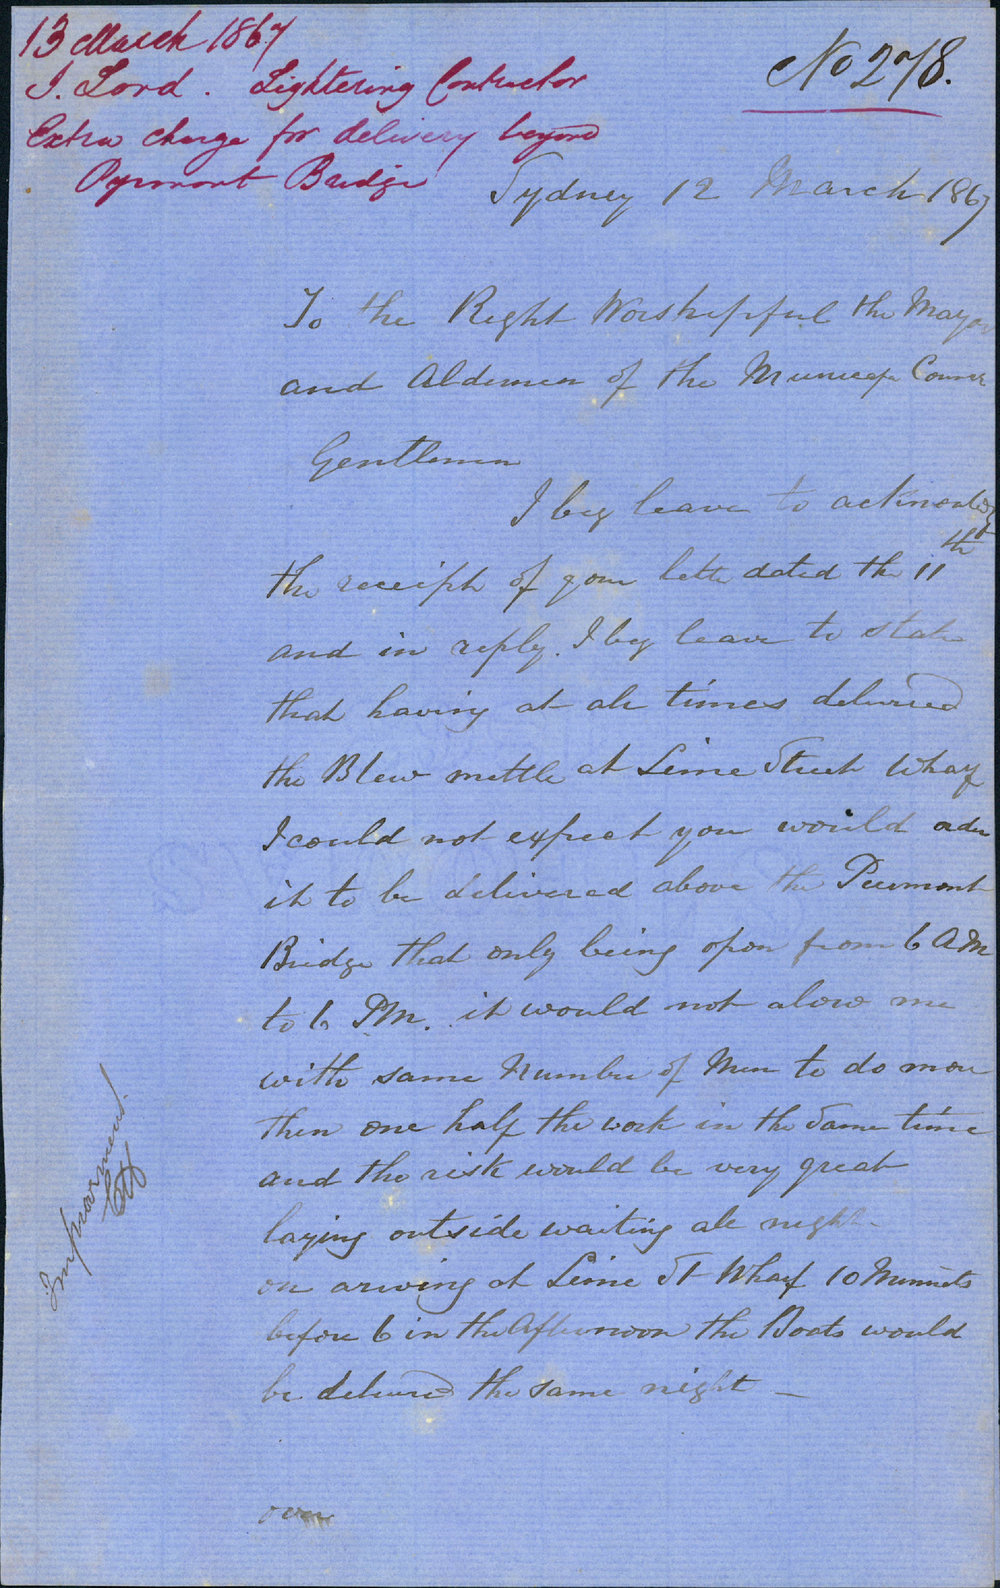 13 March 1867
J. Lord. Lightering Contractor
Extra charge for delivery beyond
Pyrmont Bridge
No 278.
Sydney 12 March 1867
To the Right Worshipful the Mayor
and Aldermen of the Municip Counc
Gentlemen
I beg leave to acknowledg
the receipt of your lette dated the 11th
and in reply. I beg leave to state
that having at all times delivered
the Blew mettle at Lime Street Wharf
I could not expect you would order
it to be delivered above the Peurmont
Bridge that only being opon from 6 AM
to 6 PM. it would not alow me
with same Number of Men to do more
then one half the work in the Same time
and the risk would be very great
laying outside waiting all night
on ariving at Lime St Wharf 10 Munuets
before 6 in the Afternoon the Boats would
be delivered the same night —
over
Improvement.